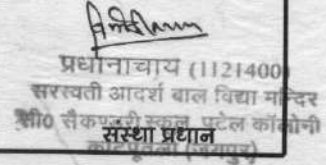 प्रधानाचार्य (1121400)
सरस्वती आदर्श बाल विद्या मन्दिर
सी0 सैकण्डरी स्कूल, पटेल कॉलोनी
संस्था प्रधान
कोटपूतली (जयपुर)